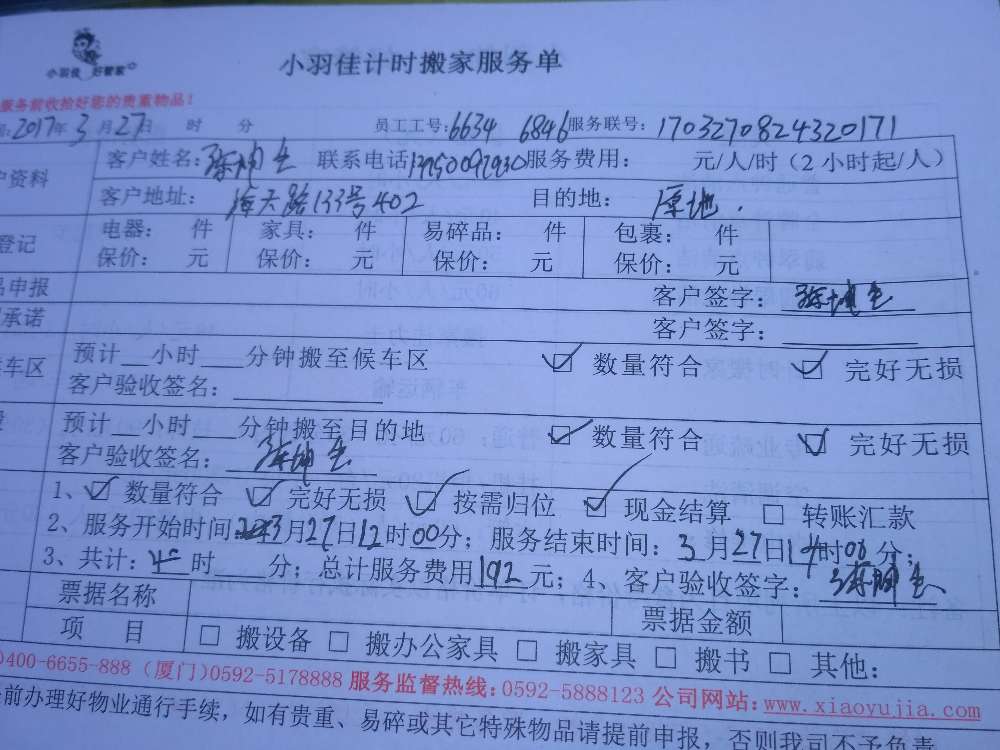 小羽佳 好管家
小羽佳计时搬家服务单
服务前收拾好您的贵重物品！
2017年3月27日 时 分 员工工号：6634 6846 服务联号：1703270824320171
户资料 客户姓名： 联系电话 服务费用： 元/人/时（2小时起/人）
客户地址：海天路133号402 目的地：原地.
登记 电器： 件 家具： 件 易碎品： 件 包裹： 件
保价： 元 保价： 元 保价： 元 保价： 元
品申报 客户签字：
承诺 客户签字：
车区 预计__小时___分钟搬至候车区 ☑ 数量符合 ☑ 完好无损
客户验收签名：
预计__小时___分钟搬至目的地 ☑ 数量符合 ☑ 完好无损
客户验收签名：
1、☑ 数量符合 ☑ 完好无损 ☑ 按需归位 ☑ 现金结算 □ 转账汇款
2、服务开始时间 3月27日12时00分；服务结束时间：3月27日14时00分；
3、共计： 时 分；总计服务费用192元；4、客户验收签字：
票据名称 票据金额
项 目 □ 搬设备 □ 搬办公家具 □ 搬家具 □ 搬书 □ 其他：
)400-6655-888（厦门)0592-5178888 服务监督热线：0592-5888123 公司网站：www.xiaoyujia.com
前办理好物业通行手续，如有贵重、易碎或其它特殊物品请提前申报，否则我司不予负责